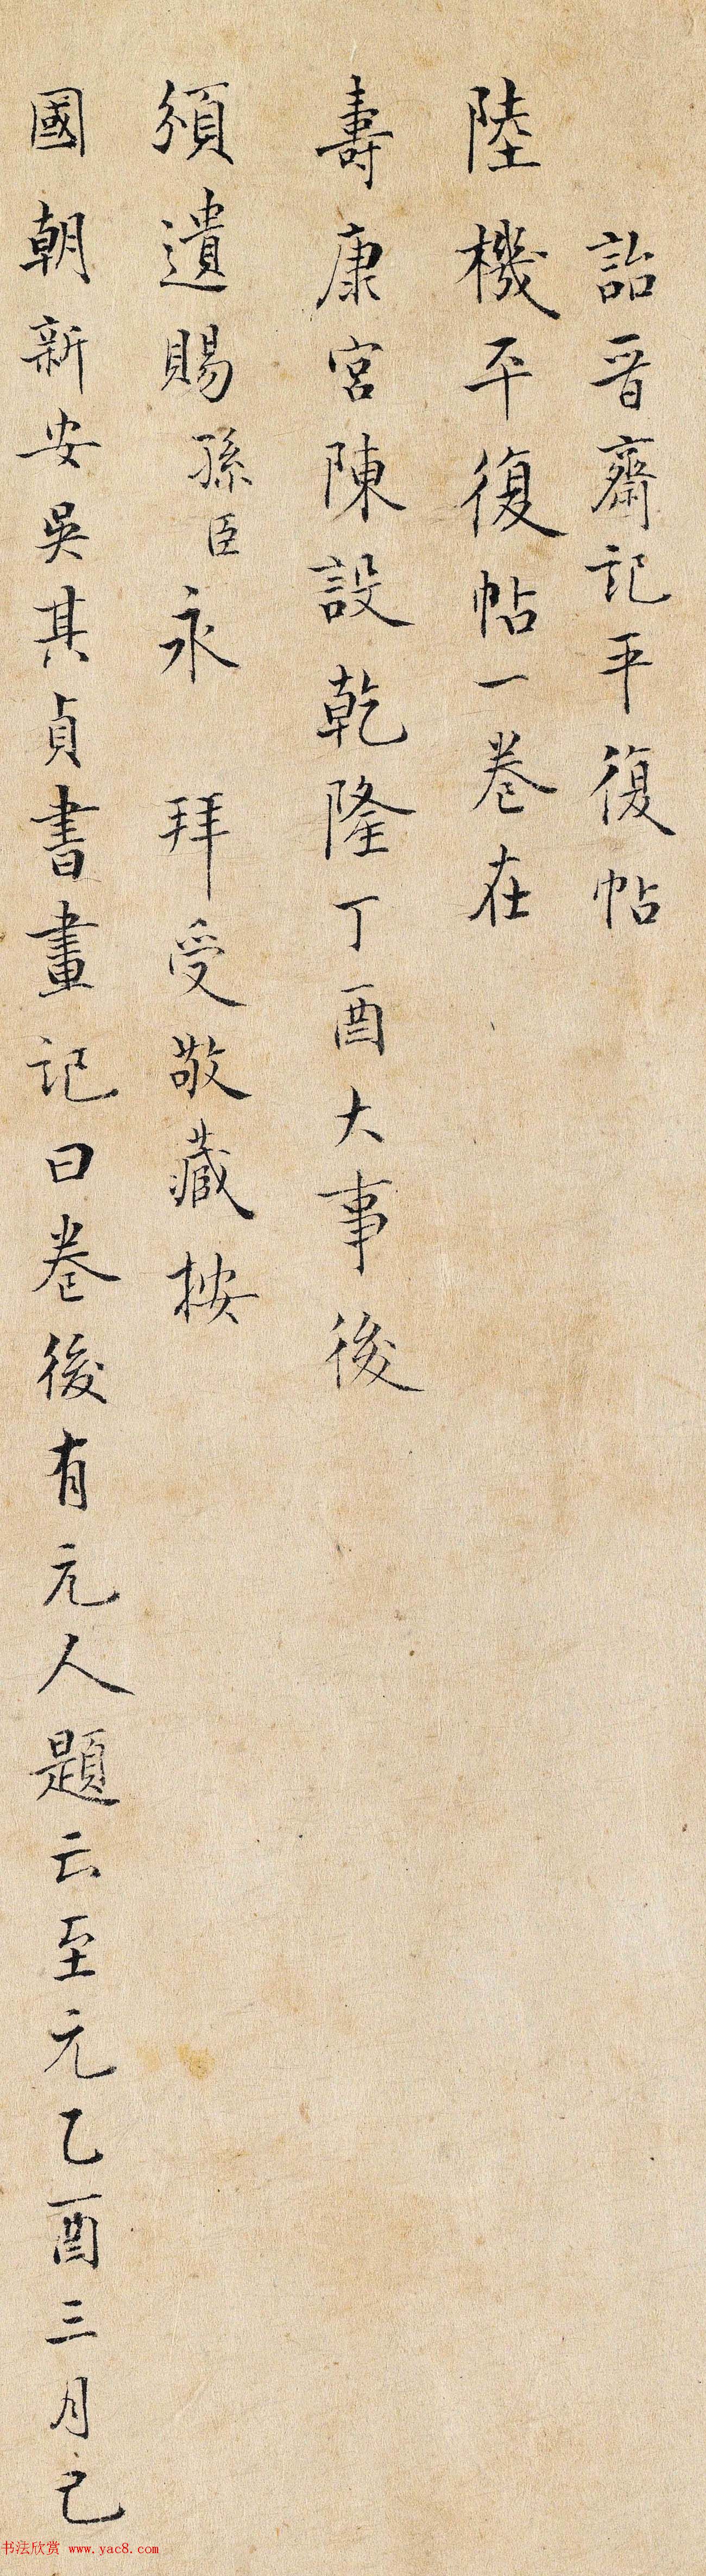 詒晉齋記平復帖
陸機平復帖一卷在
壽康宮陳設乾隆丁酉大事後
頒遺賜孫臣永 拜受敬藏按
國朝新安吳其貞書畫記曰卷後有元人題云至元乙酉三月己
书法欣赏 www.yac8.com